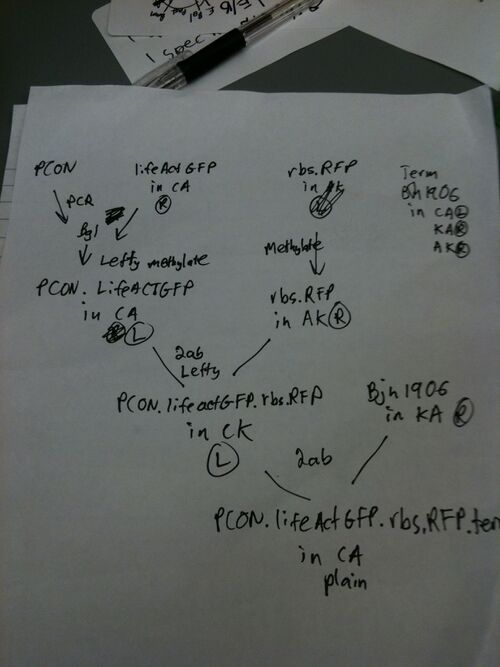 I spec
PCON
PCR
Bgl
lifeAct GFP
in CA
R
Lefty methylate
PCON. LifeACTGFP
in CA
L
rbs.RFP
in
Methylate
rbs.RFP
in AK R
Term
Bjh1906
in CA L
KA R
AK R
2ab
Lefty
PCON.lifeactGFP.rbs.RFP
in CK
L
Bjh1906
in KA R
2ab
PCON.lifeActGFP.rbs.RFP.ter
in CA
plain